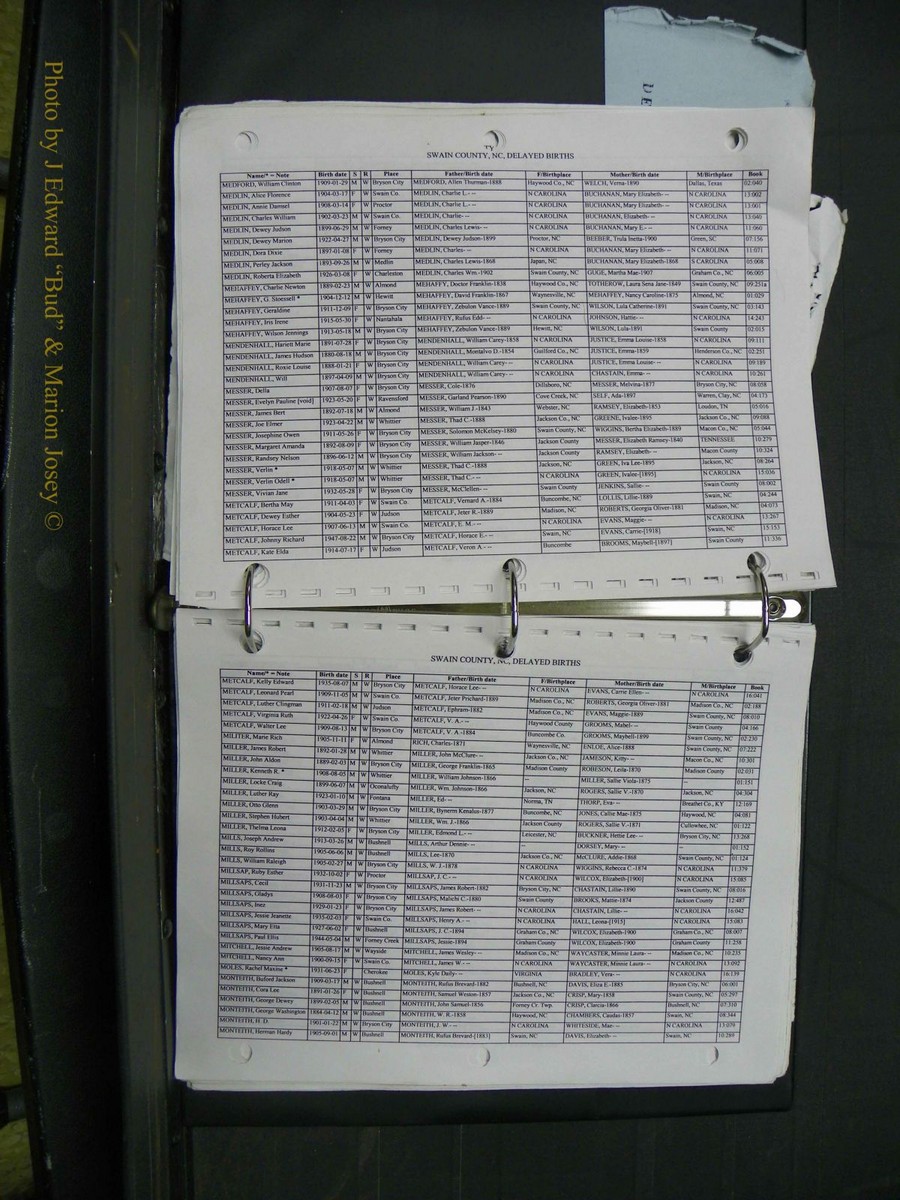 Photo by J Edward "Bud" & Marion Josey ©
SWAIN COUNTY, NC, DELAYED BIRTHS
Name/* = Note Birth date S R Place Father/Birth date F/Birthplace Mother/Birth date M/Birthplace Book
MEDFORD, William Clinton 1909-01-29 M W Bryson City MEDFORD, Allen Thurman-1888 Haywood Co., NC WELCH, Verna-1890 Dallas, Texas 02:040
MEDLIN, Alice Florence 1904-03-17 F W Swain Co. MEDLIN, Charlie L.- -- N CAROLINA BUCHANAN, Mary Elizabeth- -- N CAROLINA 13:002
MEDLIN, Annie Damsel 1908-03-14 F W Proctor MEDLIN, Charlie L.- -- N CAROLINA BUCHANAN, Mary Elizabeth- -- N CAROLINA 13:001
MEDLIN, Charles William 1902-03-23 M W Swain Co. MEDLIN, Charlie- -- N CAROLINA BUCHANAN, Elizabeth- -- N CAROLINA 13:040
MEDLIN, Dewey Judson 1899-06-29 M W Forney MEDLIN, Charles Lewis- -- N CAROLINA BUCHANAN, Mary E.- -- N CAROLINA 11:060
MEDLIN, Dewey Marion 1922-04-27 M W Bryson City MEDLIN, Dewey Judson-1899 Proctor, NC BEEBER, Trula Inetta-1900 Green, SC 07:156
MEDLIN, Dora Dixie 1897-01-08 F W Forney MEDLIN, Charles- -- N CAROLINA BUCHANAN, Mary Elizabeth- -- N CAROLINA 11:071
MEDLIN, Perley Jackson 1893-09-26 M W Medlin MEDLIN, Charles Lewis-1868 Japan, NC BUCHANAN, Mary Elizabeth-1868 S CAROLINA 05:008
MEDLIN, Roberta Elizabeth 1926-03-08 F W Charleston MEDLIN, Charles Wm.-1902 Swain County, NC GUGE, Martha Mae-1907 Graham Co., NC 06:005
MEHAFFEY, Charlie Newton 1889-02-23 M W Almond MEHAFFY, Doctor Franklin-1838 Haywood Co., NC TOTHEROW, Laura Sena Jane-1849 Swain County, NC 09:251a
MEHAFFEY, G. Stoessell * 1904-12-12 M W Hewitt MEHAFFY, David Franklin-1867 Waynesville, NC MEHAFFEY, Nancy Caroline-1875 Almond, NC 01:029
MEHAFFEY, Geraldine 1911-12-09 F W Bryson City MEHAFFEY, Zebulon Vance-1889 Swain County, NC WILSON, Lula Catherine-1891 Swain County, NC 03:143
MEHAFFEY, Iris Irene 1915-05-30 F W Nantahala MEHAFFEY, Rufus Edd- -- N CAROLINA JOHNSON, Hattie- -- N CAROLINA 14:243
MEHAFFEY, Wilson Jennings 1913-05-18 M W Bryson City MEHAFFEY, Zebulon Vance-1889 Hewitt, NC WILSON, Lula-1891 Swain County 02:015
MENDENHALL, Hariett Marie 1891-07-28 F W Bryson City MENDENHALL, William Carey-1858 N CAROLINA JUSTICE, Emma Louise-1858 N CAROLINA 09:111
MENDENHALL, James Hudson 1880-08-18 M W Bryson City MENDENHALL, Montalvo D.-1854 Guilford Co., NC JUSTICE, Emma-1859 Henderson Co., NC 02:251
MENDENHALL, Roxie Louise 1888-01-21 F W Bryson City MENDENHALL, William Carey- -- N CAROLINA JUSTICE, Emma Louise- -- N CAROLINA 09:189
MENDENHALL, Will 1897-04-09 M W Bryson City MENDENHALL, William Carey- -- N CAROLINA CHASTAIN, Emma- -- N CAROLINA 10:261
MESSER, Della 1907-08-07 F W Bryson City MESSER, Cole-1876 Dillsboro, NC MESSER, Melvina-1877 Bryson City, NC 08:058
MESSER, Evelyn Pauline [void] 1923-05-20 F W Ravensford MESSER, Garland Pearson-1890 Cove Creek, NC SELF, Ada-1897 Warren, Clay, NC 04:175
MESSER, James Bert 1892-07-18 M W Almond MESSER, William J.-1843 Webster, NC RAMSEY, Elizabeth-1853 Loudon, TN 05:016
MESSER, Joe Elmer 1923-04-22 M W Whittier MESSER, Thad C.-1888 Jackson Co., NC GREENE, Ivalee-1895 Jackson Co., NC 09:088
MESSER, Josephine Owen 1911-05-26 F W Bryson City MESSER, Solomon McKelsey-1880 Swain County, NC WIGGINS, Bertha Elizabeth-1889 Macon Co., NC 05:044
MESSER, Margaret Amanda 1892-08-09 F W Bryson City MESSER, William Jasper-1846 Jackson County MESSER, Elizabeth Ramsey-1840 TENNESSEE 10:279
MESSER, Randsey Nelson 1896-06-12 M W Bryson City MESSER, William Jackson- -- Jackson County RAMSEY, Elizabeth- -- Macon County 10:324
MESSER, Verlin * 1918-05-07 M W Whittier MESSER, Thad C.-1888 Jackson, NC GREEN, Iva Lee-1895 Jackson, NC 08:264
MESSER, Verlin Odell * 1918-05-07 M W Whittier MESSER, Thad C.- -- N CAROLINA GREEN, Ivalee-[1895] N CAROLINA 15:036
MESSER, Vivian Jane 1932-05-28 F W Bryson City MESSER, McClellen- -- Swain County JENKINS, Sallie- -- Swain County 08:002
METCALF, Bertha May 1911-04-03 F W Swain Co. METCALF, Vernard A.-1884 Buncombe, NC LOLLIS, Lillie-1889 Swain, NC 04:244
METCALF, Dewey Esther 1904-05-23 F W Judson METCALF, Jeter R.-1889 Madison, NC ROBERTS, Georgia Oliver-1881 Madison, NC 04:073
METCALF, Horace Lee 1907-06-13 M W Swain Co. METCALF, E. M.- -- N CAROLINA EVANS, Maggie- -- N CAROLINA 13:267
METCALF, Johnny Richard 1947-08-22 M W Bryson City METCALF, Horace E.- -- Swain, NC EVANS, Carrie-[1918] Swain, NC 15:153
METCALF, Kate Elda 1914-07-17 F W Judson METCALF, Veron A.- -- Buncombe BROOMS, Maybell-[1897] Swain County 11:336
SWAIN COUNTY, NC, DELAYED BIRTHS
Name/* = Note Birth date S R Place Father/Birth date F/Birthplace Mother/Birth date M/Birthplace Book
METCALF, Kelly Edward 1935-08-07 M W Bryson City METCALF, Horace Lee- -- N CAROLINA EVANS, Carrie Ellen- -- N CAROLINA 16:041
METCALF, Leonard Pearl 1909-11-05 M W Swain Co. METCALF, Jeter Prichard-1889 Madison Co., NC ROBERTS, Georgia Oliver-1881 Madison Co., NC 02:188
METCALF, Luther Clingman 1911-02-18 M W Judson METCALF, Ephram-1882 Madison Co., NC EVANS, Maggie-1889 Swain County, NC 08:010
METCALF, Virginia Ruth 1922-04-26 F W Swain Co. METCALF, V. A.- -- Haywood County GROOMS, Mabel- -- Swain County 04:166
METCALF, Walter Lee 1909-08-13 M W Bryson City METCALF, V. A.-1884 Buncombe Co. GROOMS, Maybell-1899 Swain County, NC 02:230
MILITER, Marie Rich 1905-11-11 F W Almond RICH, Charles-1871 Waynesville, NC ENLOE, Alice-1888 Swain County, NC 07:222
MILLER, James Robert 1892-01-28 M W Whittier MILLER, John McClure- -- Jackson Co., NC JAMESON, Kitty- -- Macon Co., NC 10:301
MILLER, John Aldon 1889-02-03 M W Bryson City MILLER, George Franklin-1865 Madison County ROBESON, Leila-1870 Madison County 02:031
MILLER, Kenneth R. * 1908-08-05 M W Whittier MILLER, William Johnson-1866 -- MILLER, Sallie Viola-1875 -- 01:151
MILLER, Locke Craig 1899-06-07 M W Oconalufty MILLER, Wm. Johnson-1866 Jackson, NC ROGERS, Sallie V.-1870 Jackson, NC 04:304
MILLER, Luther Ray 1923-01-10 M W Fontana MILLER, Ed- -- Norma, TN THORP, Eva- -- Breathet Co., KY 12:169
MILLER, Otto Glenn 1903-03-29 M W Bryson City MILLER, Bynerm Kenalus-1877 Buncombe, NC JONES, Callie Mae-1875 Haywood, NC 04:081
MILLER, Stephen Hubert 1903-04-04 M W Whittier MILLER, Wm. J.-1866 Jackson County ROGERS, Sallie V.-1871 Cullowhee, NC 01:122
MILLER, Thelma Leona 1912-02-05 F W Bryson City MILLER, Edmond L.- -- Leicester, NC BUCKNER, Hettie Lee- -- Bryson City, NC 13:268
MILLS, Joseph Andrew 1913-03-26 M W Bushnell MILLS, Arthur Dennie- -- -- DORSEY, Mary- -- -- 01:152
MILLS, Roy Rollins 1905-06-06 M W Bushnell MILLS, Lee-1870 Jackson Co., NC McCLURE, Addie-1868 Swain County, NC 01:124
MILLS, William Raleigh 1905-02-27 M W Bryson City MILLS, W. J.-1878 N CAROLINA WIGGINS, Rebecca C.-1874 N CAROLINA 11:379
MILLSAP, Ruby Esther 1932-10-02 F W Proctor MILLSAP, J. C.- -- N CAROLINA WILCOX, Elizabeth-[1900] N CAROLINA 15:085
MILLSAPS, Cecil 1931-11-23 M W Bryson City MILLSAPS, James Robert-1882 Bryson City, NC CHASTAIN, Lillie-1890 Swain County, NC 08:016
MILLSAPS, Gladys 1908-08-03 F W Bryson City MILLSAPS, Malichi C.-1880 Swain County BROOKS, Mattie-1874 Jackson County 12:487
MILLSAPS, Inez 1929-01-23 F W Bryson City MILLSAPS, James Robert- -- N CAROLINA CHASTAIN, Lillie- -- N CAROLINA 16:042
MILLSAPS, Jessie Jeanette 1935-02-03 F W Swain Co. MILLSAPS, Henry A.- -- N CAROLINA HALL, Leona-[1915] N CAROLINA 15:083
MILLSAPS, Mary Etta 1927-06-02 F W Bushnell MILLSAPS, J. C.-1894 Graham Co., NC WILCOX, Elizabeth-1900 Graham Co., NC 08:007
MILLSAPS, Paul Ellis 1944-05-04 M W Forney Creek MILLSAPS, Jessie-1894 Graham County WILCOX, Elizabeth-1900 Graham County 11:238
MITCHELL, Jessie Andrew 1905-08-17 M W Wayside MITCHELL, James Wesley- -- Madison Co., NC WAYCASTER, Minnie Laura- -- Madison Co., NC 10:235
MITCHELL, Nancy Ann 1900-09-15 F W Swain Co. MITCHELL, James W.- -- N CAROLINA WAYCASTER, Minnie Laura- -- N CAROLINA 13:092
MOLES, Rachel Maxine * 1931-06-23 F Cherokee MOLES, Kyle Daily- -- VIRGINIA BRADLEY, Vera- -- N CAROLINA 16:139
MONTEITH, Buford Jackson 1909-03-17 M W Bushnell MONTEITH, Rufus Brevard-1882 Bushnell, NC DAVIS, Eliza E.-1885 Bryson City, NC 06:001
MONTEITH, Cora Lee 1891-01-26 F W Bushnell MONTEITH, Samuel Weston-1857 Jackson Co., NC CRISP, Mary-1858 Swain Co., NC 05:297
MONTEITH, George Dewey 1899-02-05 M W Bushnell MONTEITH, John Samuel-1856 Forney Cr. Twp. CRISP, Clarcia-1866 Bushnell, NC 07:310
MONTEITH, George Washington 1884-04-12 M W Bushnell MONTEITH, W. R.-1858 Haywood, NC CHAMBERS, Caudas-1857 Swain, NC 08:344
MONTEITH, H. D. 1901-01-22 M W Bryson City MONTEITH, J. W.- -- N CAROLINA WHITESIDE, Mae- -- N CAROLINA 13:079
MONTEITH, Herman Hardy 1905-09-01 M W Bushnell MONTEITH, Rufus Brevard-[1883] Swain, NC DAVIS, Elizabeth- -- Swain, NC 10:289